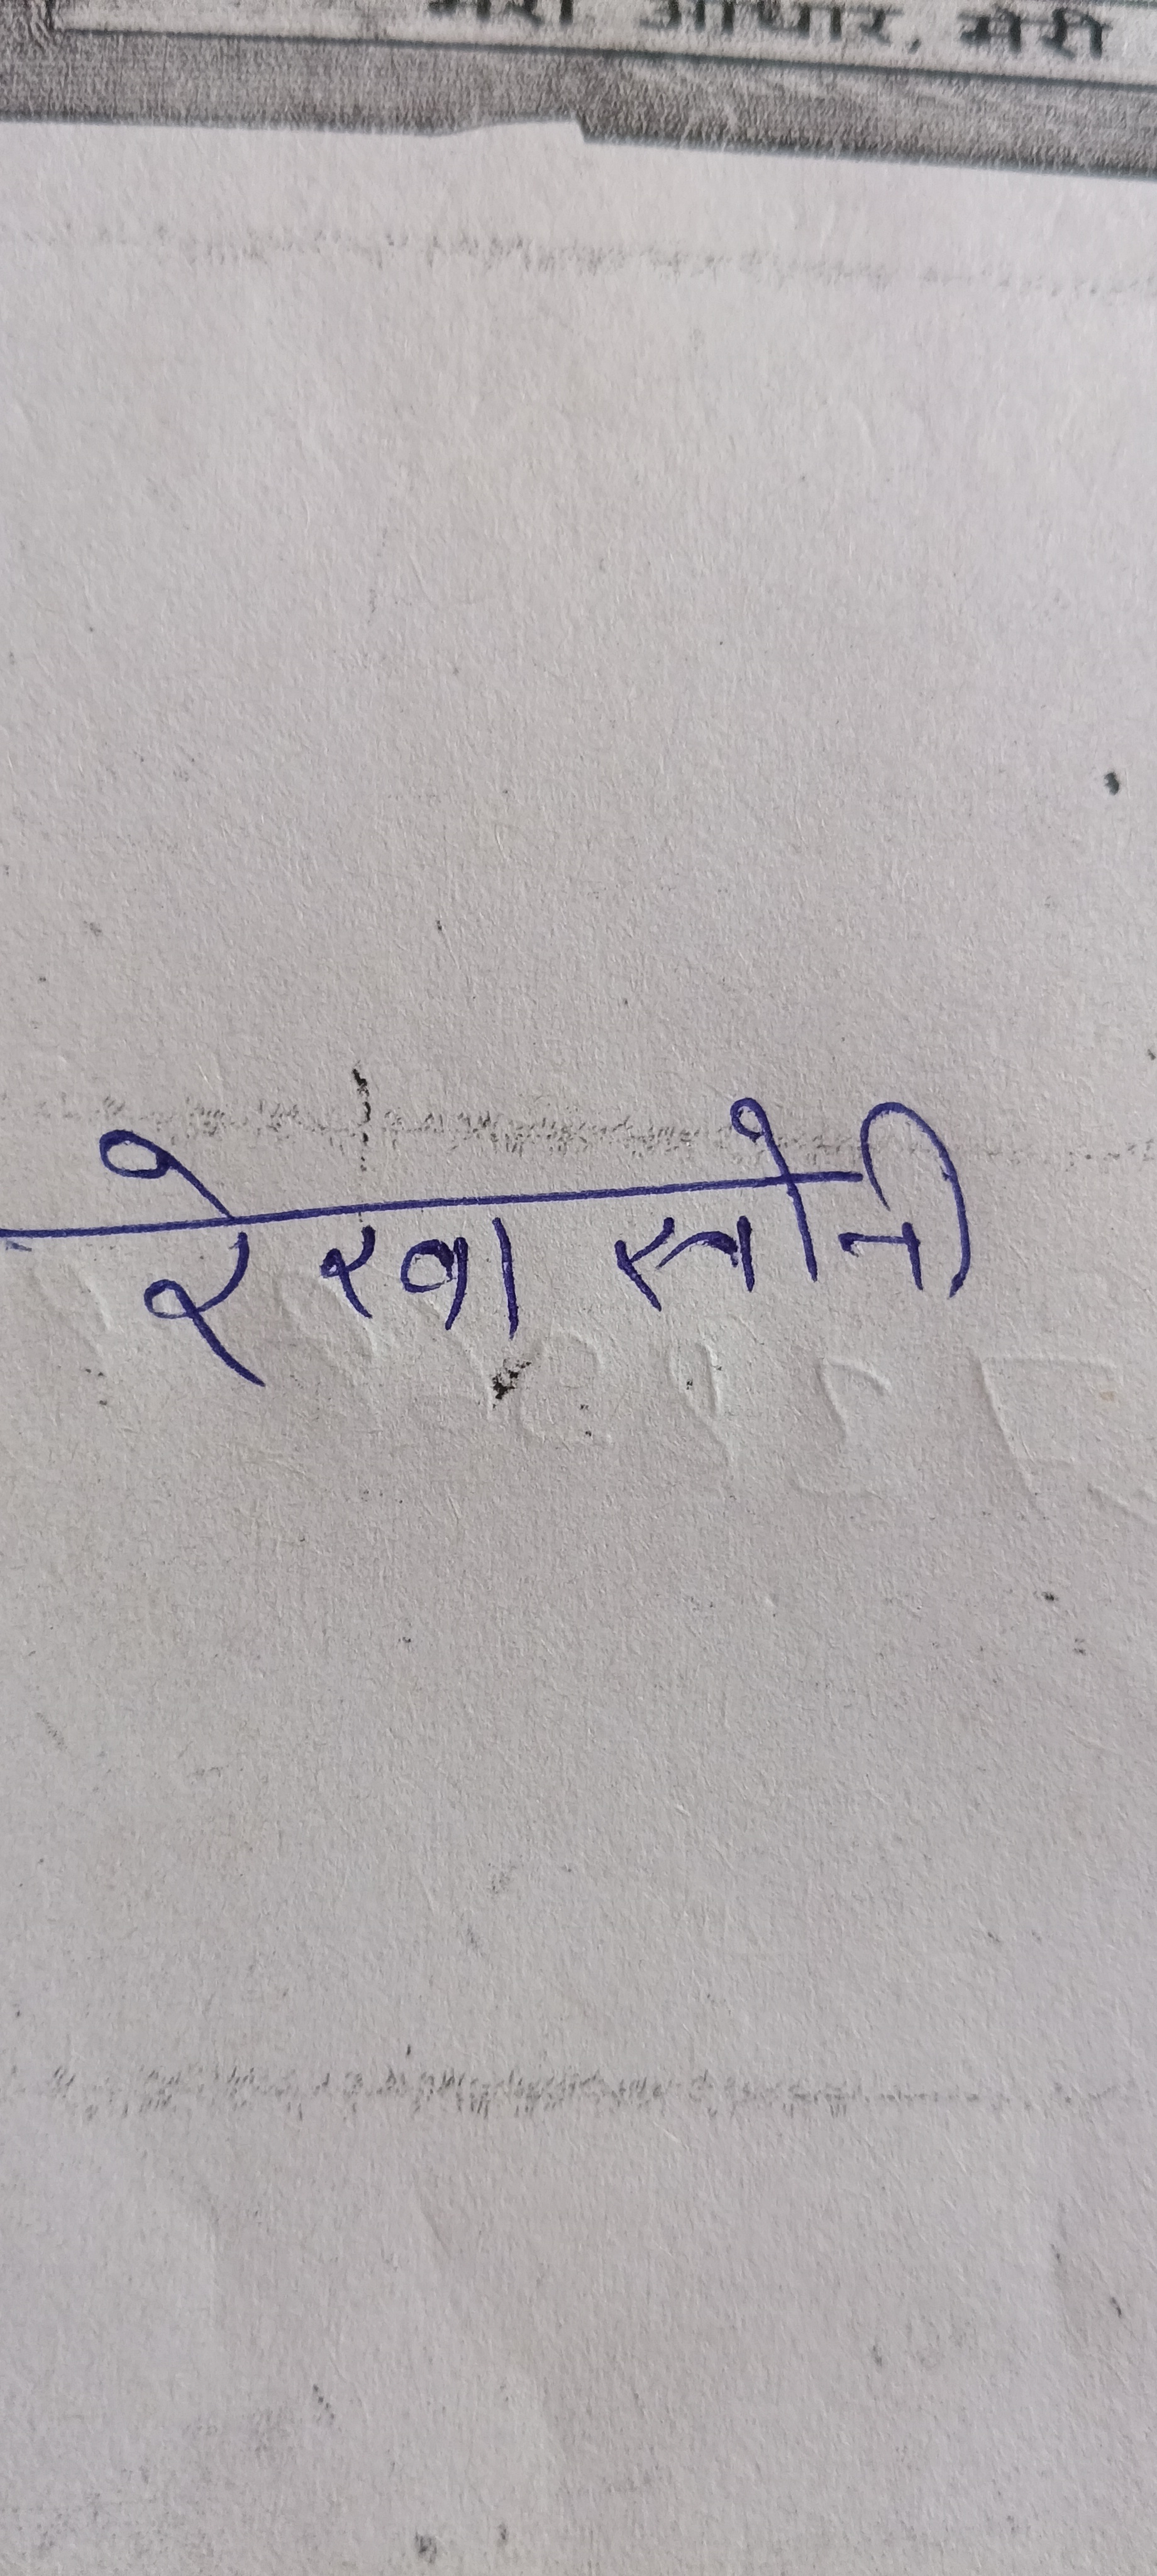 मेरा आधार, मेरी
रेखा सोनी